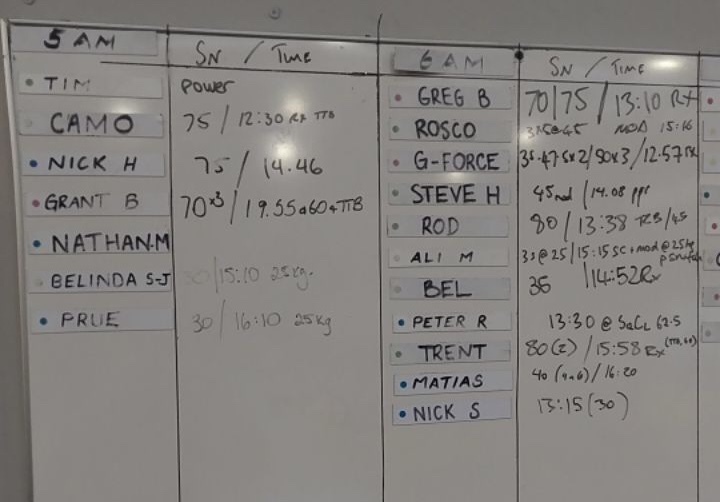 5 AM
SN / TIME
TIM
power
CAMO
75 / 12:30 RX TTB
NICK H
75 / 14.46
GRANT B
70x3 / 19.55 @60 + TTB
NATHAN.M
BELINDA S-J
30/15:10 25kg.
PRUE
30 / 16:10 25kg
6 AM
SN / TIME
GREG B
70/75 / 13:10 RX
ROSCO
MOD 15:16
G-FORCE
/12:57 RX
STEVE H
45 / 14.08
ROD
80 / 13:38
ALI M
BEL
35 /14:52 Rx
PETER R
13:30 @ 62.5
TRENT
80(2) / 15:58 RX
MATIAS
40 / 16:20
NICK S
13:15 (30)